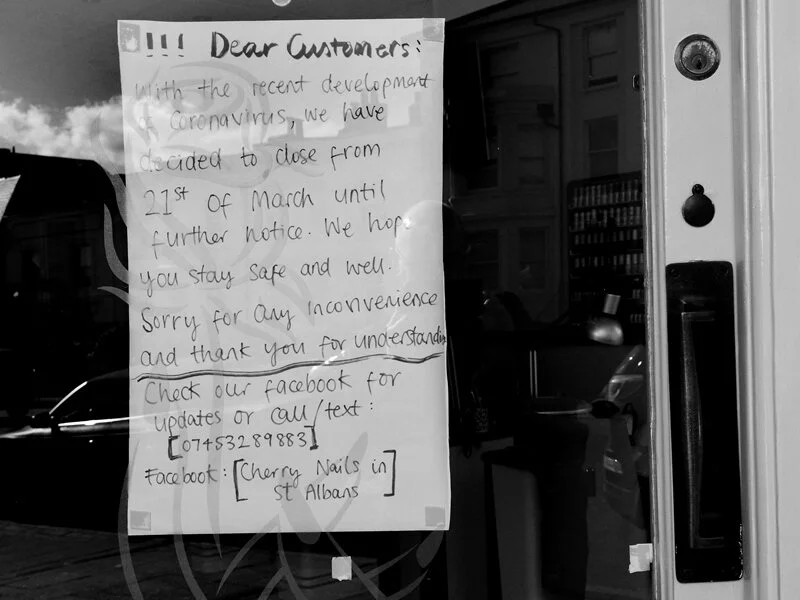 !!! Dear Customers:
With the recent development
of Coronavirus, we have
decided to close from
21st of March until
further notice. We hope
you stay safe and well.
Sorry for any inconvenience
and thank you for understandin
Check our facebook for
updates or call/text:
[07453289883]
Facebook: [Cherry Nails in
St Albans]